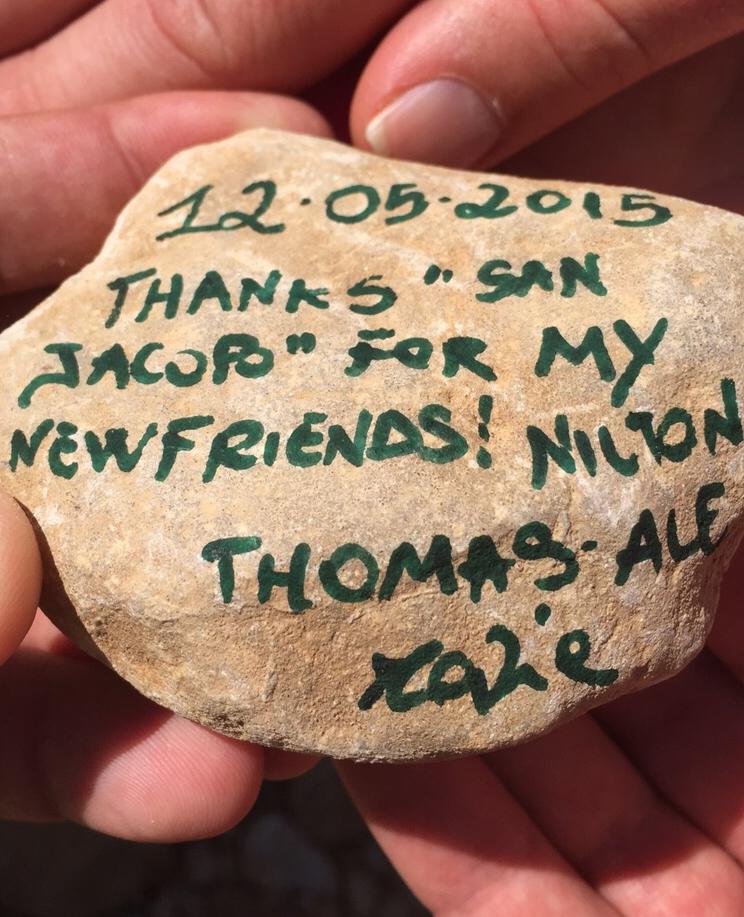 12·05·2015
THANKS "SAN
JACOPO" FOR MY
NEWFRIENDS! NILTON
THOMAS· ALE